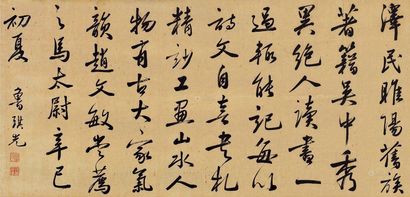 澤民睢陽舊族
著籍吳中秀
異絕人讀書一
過輒能記每以
詩文自喜書札
精妙工畫山水人
物有古大家氣
韻趙文敏嘗薦
之馬太尉辛巳
初夏 魯琪光